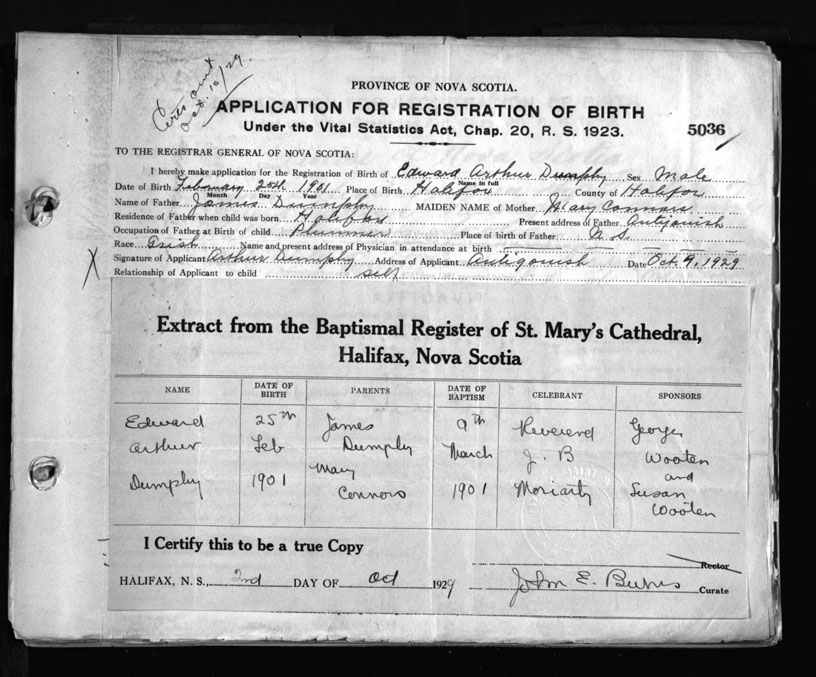 Certs out
Oct. 10/29.
PROVINCE OF NOVA SCOTIA.
APPLICATION FOR REGISTRATION OF BIRTH
Under the Vital Statistics Act, Chap. 20, R. S. 1923.
5036
TO THE REGISTRAR GENERAL OF NOVA SCOTIA:
I hereby make application for the Registration of Birth of Edward Arthur Dumphy Sex Male
Name in full
Date of Birth February 25th 1901 Place of Birth Halifax County of Halifax
Month Day Year
Name of Father James Dumphy MAIDEN NAME of Mother Mary Connors
Residence of Father when child was born Halifax Present address of Father Antigonish
Occupation of Father at Birth of child Plummer Place of birth of Father N.S.
Race Irish Name and present address of Physician in attendance at birth
Signature of Applicant Arthur Dumphy Address of Applicant Antigonish Date Oct. 9, 1929
Relationship of Applicant to child self
Extract from the Baptismal Register of St. Mary's Cathedral,
Halifax, Nova Scotia
NAME DATE OF BIRTH PARENTS DATE OF BAPTISM CELEBRANT SPONSORS
Edward 25th James 9th Reverend George
Arthur Feb Dumphy March J. B Wooten
and
Dumphy 1901 Mary Connors 1901 Moriarty Susan
Wooten
I Certify this to be a true Copy
Rector
HALIFAX, N. S., 2nd DAY OF Oct 1929 John E. Burns Curate